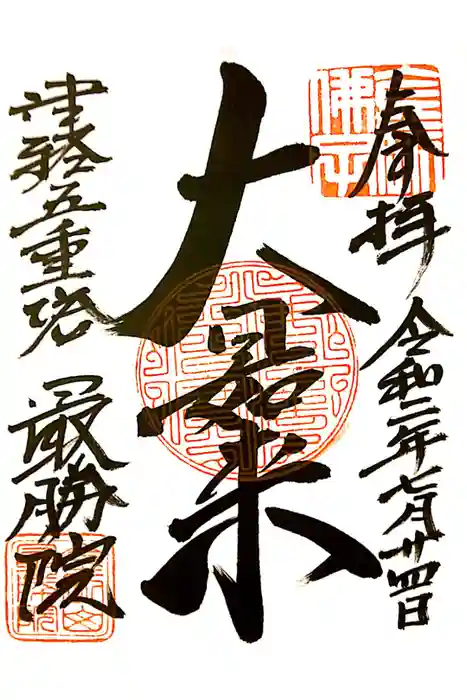 奉拝 令和二年七月廿四日
大日如来
津軽五重塔 最勝院